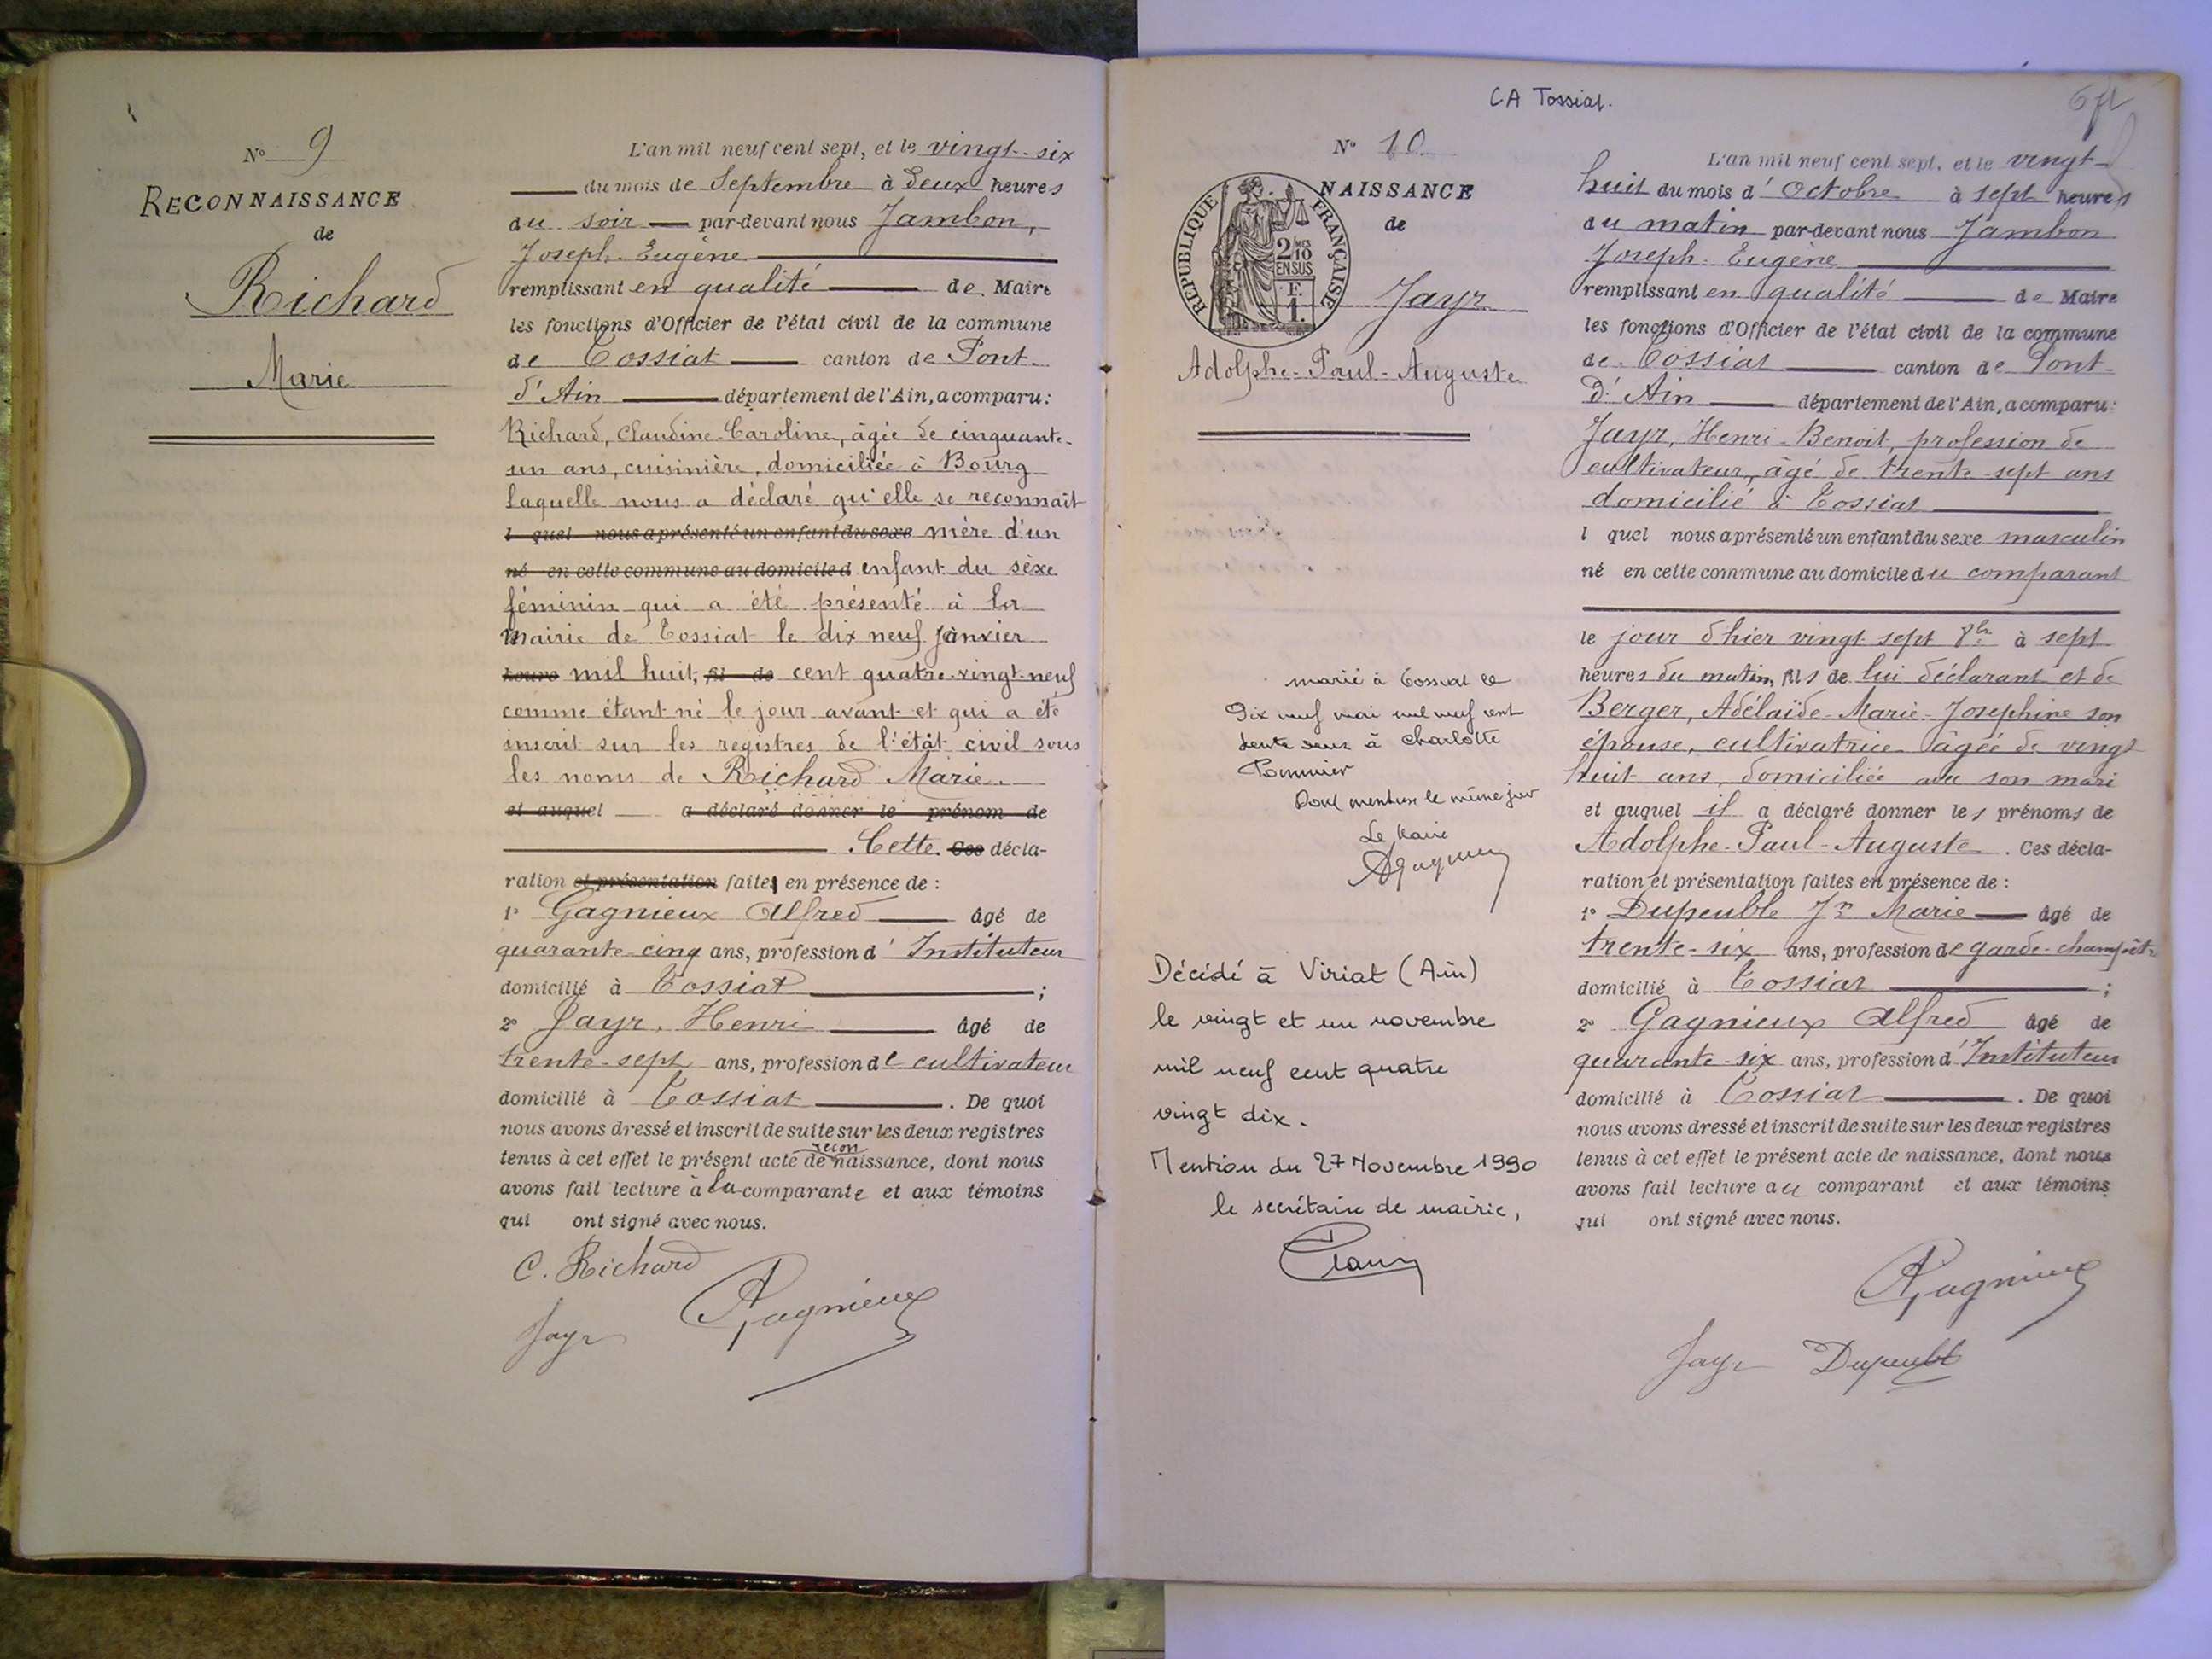 N° 9
RECONNAISSANCE
de
Richard
Marie
L'an mil neuf cent sept, et le vingt-six
du mois de Septembre à deux heures
du soir par-devant nous Jambon,
Joseph-Eugène
remplissant en qualité de Maire
les fonctions d'Officier de l'état civil de la commune
de Tossiat canton de Pont-
d'Ain département de l'Ain, a comparu :
Richard, Claudine-Caroline, âgée de cinquante-
un ans, cuisinière, domiciliée à Bourg
laquelle nous a déclaré qu'elle se reconnaît
l quel nous a présenté un enfant du sexe mère d'un
né en cette commune au domicile d enfant du sèxe
féminin qui a été présenté à la
Mairie de Tossiat le dix neuf janvier
heure mil huit, fil de cent quatre-vingt-neuf
comme étant né le jour avant et qui a été
inscrit sur les registres de l'état civil sous
les noms de Richard Marie.
et auquel a déclaré donner le prénom de
Cette. Ces décla-
ration et présentation faites en présence de :
1° Gagnieux Alfred âgé de
quarante-cinq ans, profession d'Instituteur
domicilié à Tossiat ;
2° Jayr, Henri âgé de
trente-sept ans, profession de cultivateur
domicilié à Tossiat . De quoi
nous avons dressé et inscrit de suite sur les deux registres
recon
tenus à cet effet le présent acte de naissance, dont nous
avons fait lecture à la comparante et aux témoins
qui ont signé avec nous.
C. Richard
Jayr AGagnieux
CA Tossiat.
N° 10
NAISSANCE
de
RÉPUBLIQUE FRANÇAISE
2/10
EN SUS
F.
1.
Jayr
Adolphe-Paul-Auguste
marié à Tossiat le
Dix neuf mai mil neuf cent
trente deux à Charlotte
Pommier
Dont mention le même jour
Le Maire
AGagnieux
Décédé à Viriat (Ain)
le vingt et un novembre
mil neuf cent quatre
vingt dix.
Mention du 27 Novembre 1990
le secrétaire de mairie,
L'an mil neuf cent sept, et le vingt-
huit du mois d'Octobre à sept heures
du matin par-devant nous Jambon
Joseph-Eugène
remplissant en qualité de Maire
les fonctions d'Officier de l'état civil de la commune
de Tossiat canton de Pont-
d'Ain département de l'Ain, a comparu :
Jayr, Henri-Benoit, profession de
cultivateur, âgé de trente-sept ans
domicilié à Tossiat
l quel nous a présenté un enfant du sexe masculin
né en cette commune au domicile du comparant
le jour d'hier vingt-sept 8bre à sept
heures du matin, fils de lui déclarant et de
Berger, Adélaïde-Marie-Josephine son
épouse, cultivatrice âgée de vingt
huit ans, domiciliée avec son mari
et auquel il a déclaré donner les prénoms de
Adolphe-Paul-Auguste . Ces décla-
ration et présentation faites en présence de :
1° Dupeuble Jn Marie âgé de
trente-six ans, profession de garde-champêtre
domicilié à Tossiat ;
2° Gagnieux Alfred âgé de
quarante-six ans, profession d'Instituteur
domicilié à Tossiat . De quoi
nous avons dressé et inscrit de suite sur les deux registres
tenus à cet effet le présent acte de naissance, dont nous
avons fait lecture au comparant et aux témoins
qui ont signé avec nous.
AGagnieux
Jayr Dupeuble